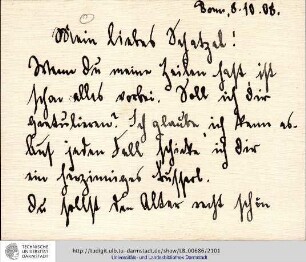 Bonn, 8.10.08.
Mein liebes Schatzel!
Wenn Du meine Zeilen hast ist
schon alles vorbei. Soll ich dir
gratulieren? Ich glaube, ich kann es.
Auf jeden Fall schicke ich dir
ein herzinniges Busserl.
Du sollst den Alter recht schön
TECHNISCHE
UNIVERSITÄT
DARMSTADT
http://tudigit.ulb.tu-darmstadt.de/show/LB_00686/2101
Universitäts- und Landesbibliothek Darmstadt